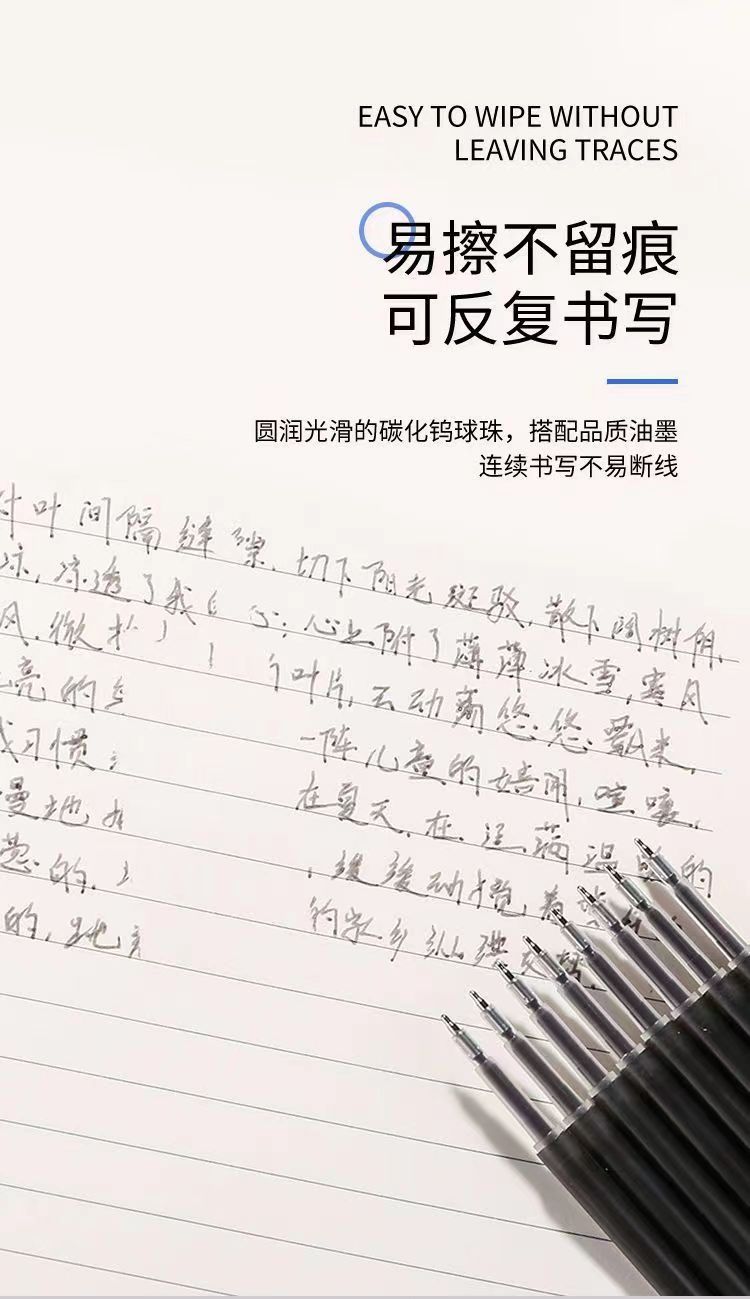 EASY TO WIPE WITHOUT
LEAVING TRACES
易擦不留痕
可反复书写
圆润光滑的碳化钨球珠，搭配品质油墨
连续书写不易断线
叶间隔缝隙.切下阳光斑驳.散下阔树阴.
凉,凉透了我 心;心上附了薄薄冰雪,寒风
风.微
个叶片,云动 悠悠
亮的
一阵儿童的 喧嚷,
习惯,
在夏天,在 满温 的
慢地
缓缓动
的,
的,